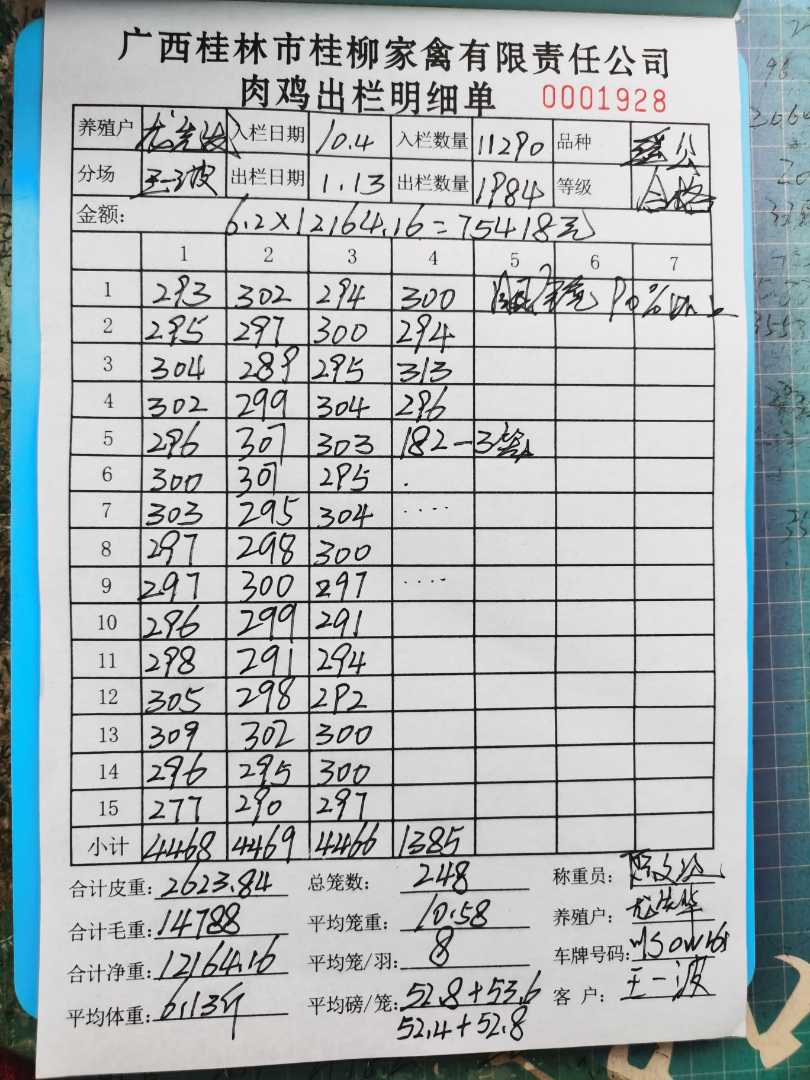 广西桂林市桂柳家禽有限责任公司
肉鸡出栏明细单 0001928
养殖户 入栏日期 10.4 入栏数量 11290 品种 公
分场 王一波 出栏日期 1.13 出栏数量 1984 等级 合格
金额: 6.2×12164.16=75418元
1 2 3 4 5 6 7
1 293 302 294 300 90%以上
2 295 297 300 294
3 304 289 295 313
4 302 299 304 296
5 296 307 303 182-3
6 300 301 295
7 303 295 304
8 297 298 300
9 297 300 297
10 296 299 291
11 298 291 294
12 305 298 292
13 309 302 300
14 296 295 300
15 277 290 297
小计 4468 4469 4466 1385
合计皮重: 2623.84 总笼数: 248 称重员:
合计毛重: 14788 平均笼重: 10.58 养殖户:
合计净重: 12164.16 平均笼/羽: 8 车牌号码:
平均体重: 6.13斤 平均磅/笼: 52.8+53.6 客户: 王一波
52.4+52.8